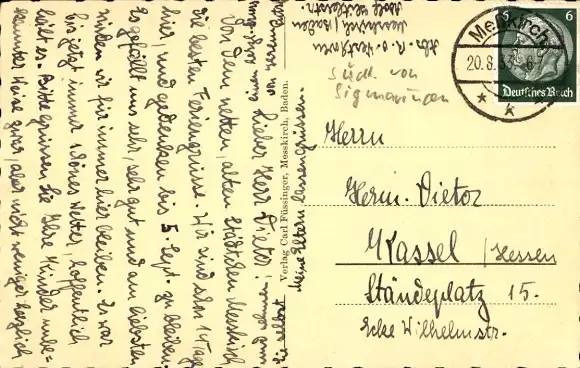 Lieber Herr Vietor!
Von dem netten, alten Städtchen Messkirch
die besten Feriengrüsse. Wir sind schon 1 Tage
hier, und gedenken bis 5. Sept. zu bleiben
Es gefällt uns sehr, sehr gut und am liebsten
würden wir für immer hier bleiben. Es war
bis jetzt immer schönes Wetter, hoffentlich
hält es. Bitte grüssen Sie Ihre Kinder unbe-
kannter Weise ganz, aber nicht weniger herzlich
und
Sie selbst
von
Meine Eltern lassen grüssen.
Verlag Carl Füssinger, Messkirch, Baden.
Messkirch / Baden
Adolf
Südl. von
Sigmaringen
Meßkirch
20.8.
6
6
Deutsches Reich
Herrn
Herm. Vietor
Kassel / Hessen
Ständeplatz 15.
Ecke Wilhelmstr.